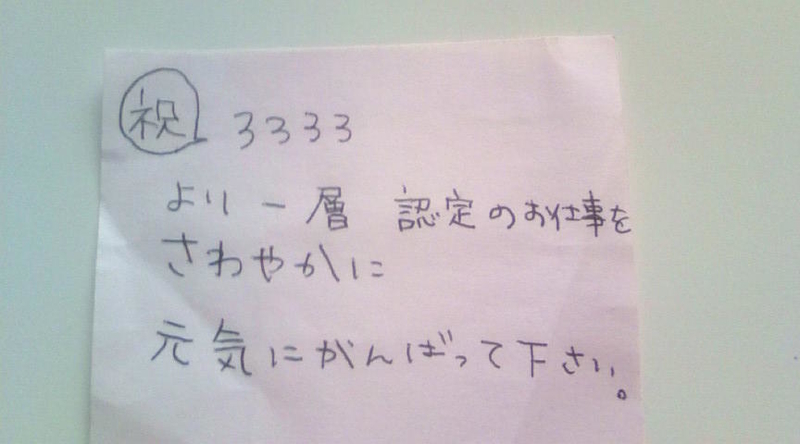 祝 3333
より一層 認定のお仕事を
さわやかに
元気にがんばって下さい。